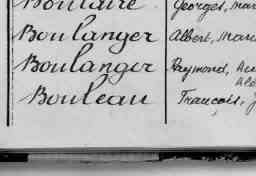 Boulaire Georges, Mar
Boulanger Albert, Mari
Boulanger Raymond, Au
Bouleau François, J